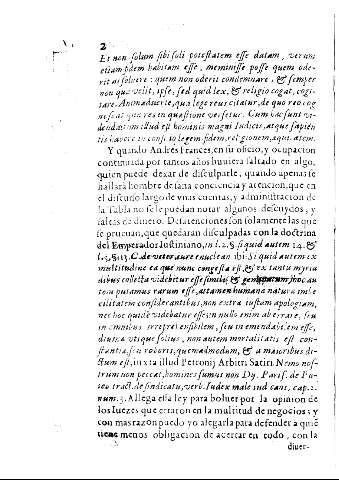 2
Et non solum sibi soli potestatem esse datam, verum
etiam fidem habitam esse, meminisse posse quem ode-
rit absoluere: quem non oderit condemnare, & semper
non quid velit, ipse, sed quid lex, & religio cogat, cogi-
tare. Animaduerte, qua lege reus citatur, de quo reo cog-
noscat que res in quæstione versetur. Cum hæc sunt vi-
denda tum illud est hominis magni Iudicis, atque sapiẽn
tis habere in consilio legem fidem, religionem, aqui. atem.
Y quando Andres Frances, en su oficio, y ocupacion
continuada por tantos años huuiera faltado en algo,
quien puede dexar de disculparle, quando apenas se
hallarà hombre de tãta conciencia y atencion, que en
el discurso largo de vnas cuentas, y administracion de
la Tabla no se le puedan notar algunos descuydos, y
faltas de dinero. Detatenciones son solamente las que
se prueuan, que quedaran disculpadas con la doctrina
del Emperador Iustiniano, in l. 2. §. si quid autem 14. &
l. 3. §. C. de vetera iure enucleando ibi: Si quid autem ex
multitudine ea que nunc congesta est, & ex tantu myria
dibus collecta videbitur esse simile, & hoc au
tem putamus rarum esse, attamen humana natura imbe
cilitatem considerantibus, non extra iustam apologiam,
nec hoc quidẽ videbatur esse in nullo enim aberrare, seu
in omnibus irreprehensibilem, seu inemendabilem esse,
diuinæ vtique solius, non autem mortalitatis est con-
stantiæ, seu roboris, quemadmodum, & a maioribus di-
ctum est, iuxta illud Petronij Arbitri Satiri. Nemo nos-
trum non peccat, homines sumus non Dy. Paris. de Pu-
teo tract. de sindicatu, verb. Iudex male iud. caus, cap. 2.
num. 3. Allega esta ley para boluer por la opinion de
los Iuezes que erraron en la multitud de negocios; y
con mas razon puedo yo alegarla para defender a quiẽ
tiene menos obligacion de acertar en todo, con la
diuer-